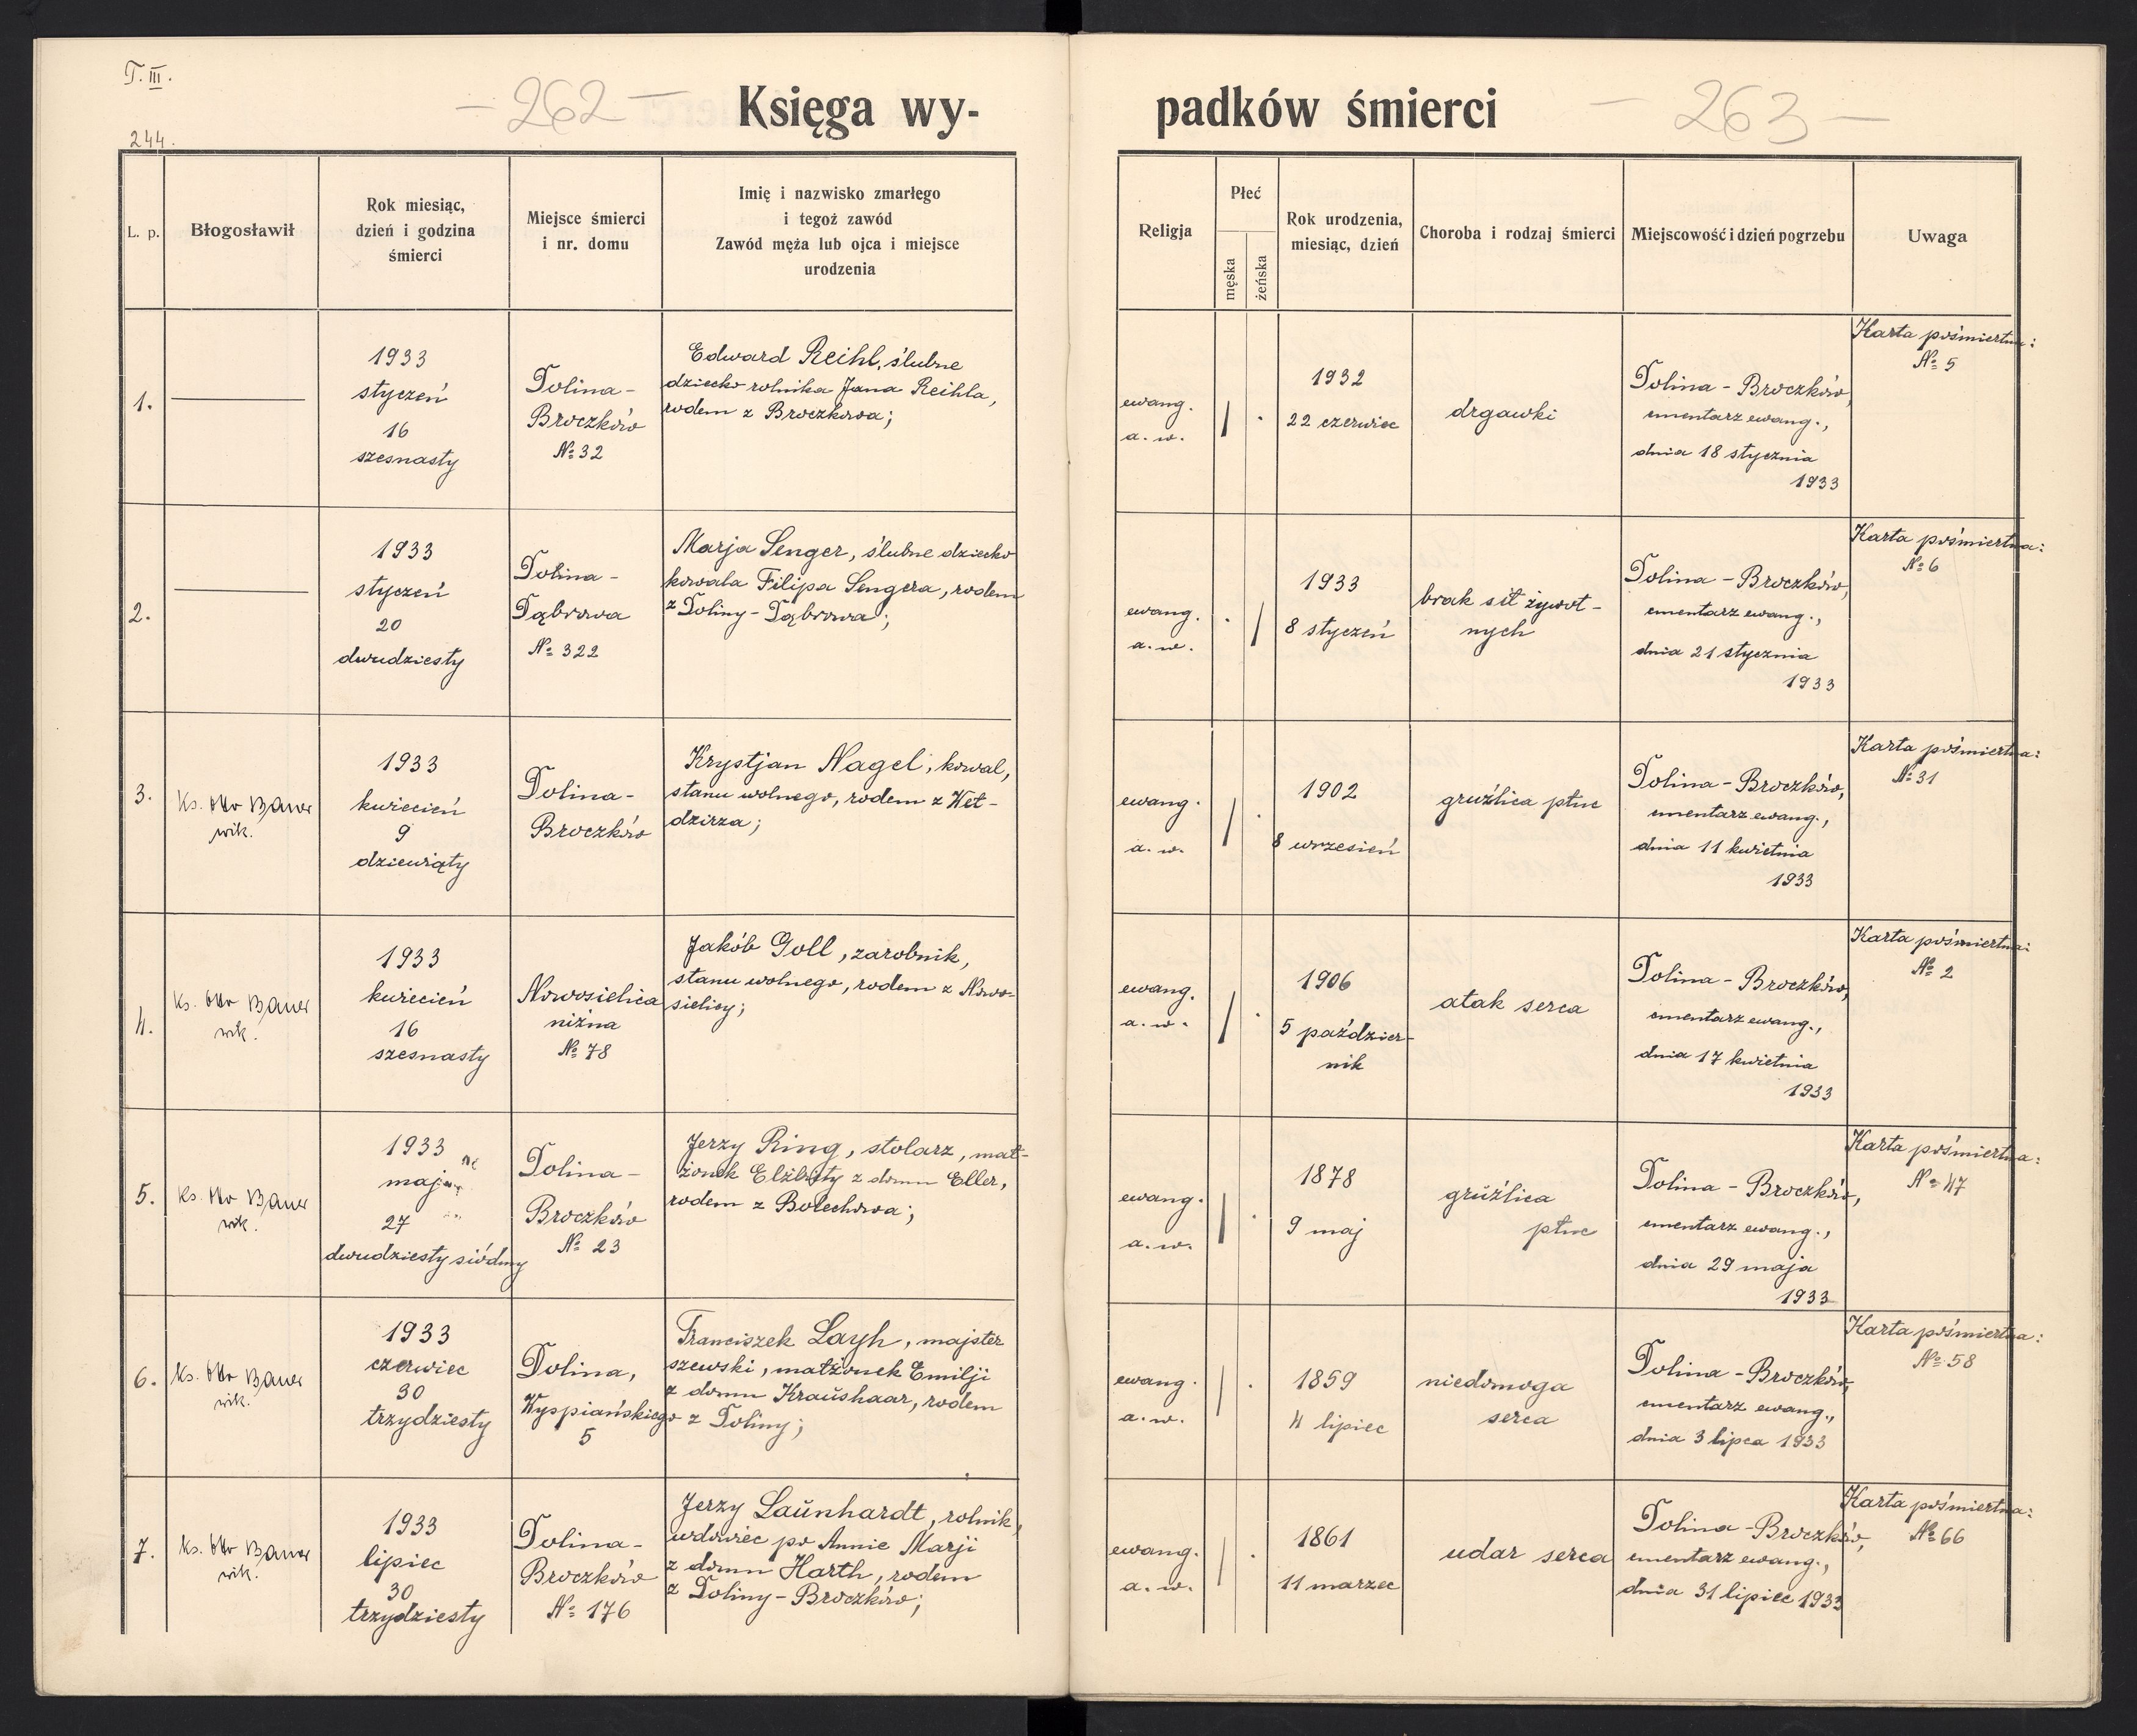 T. III.
244.
— 262 —
Księga wy-
padków śmierci
— 263 —
L. p.
Błogosławił
Rok miesiąc,
dzień i godzina
śmierci
Miejsce śmierci
i nr. domu
Imię i nazwisko zmarłego
i tegoż zawód
Zawód męża lub ojca i miejsce
urodzenia
Religja
Płeć
męska
żeńska
Rok urodzenia,
miesiąc, dzień
Choroba i rodzaj śmierci
Miejscowość i dzień pogrzebu
Uwaga
1.
1933
styczeń
16
szesnasty
Dolina-
Broczków
№ 32
Edward Reihl, ślubne
dziecko rolnika Jana Reihla,
rodem z Broczkowa;
ewang.
a. w.
1932
22 czerwiec
drgawki
Dolina - Broczków,
cmentarz ewang.,
dnia 18 stycznia
1933
Karta pośmiertna:
№ 5
2.
1933
styczeń
20
dwudziesty
Dolina-
Dąbrowa
№ 322
Marja Senger, ślubne dziecko
kowala Filipa Sengera, rodem
z Doliny - Dąbrowa;
ewang.
a. w.
1933
8 styczeń
brak sił żywot-
nych
Dolina - Broczków,
cmentarz ewang.,
dnia 21 stycznia
1933
Karta pośmiertna:
№ 6
3.
Ks. Otto Bauer
wik.
1933
kwiecień
9
dziewiąty
Dolina-
Broczków
Krystjan Nagel, kowal,
stanu wolnego, rodem z Weł-
dzirza;
ewang.
a. w.
1902
8 wrzesień
gruźlica płuc
Dolina - Broczków,
cmentarz ewang.,
dnia 11 kwietnia
1933
Karta pośmiertna:
№ 31
4.
Ks. Otto Bauer
wik.
1933
kwiecień
16
szesnasty
Nowosielica
niżna
№ 78
Jakób Goll, zarobnik,
stanu wolnego, rodem z Nowo-
sielicy;
ewang.
a. w.
1906
5 paździer-
nik
atak serca
Dolina - Broczków,
cmentarz ewang.,
dnia 17 kwietnia
1933
Karta pośmiertna:
№ 2
5.
Ks. Otto Bauer
wik.
1933
maj
27
dwudziesty siódmy
Dolina-
Broczków
№ 23
Jerzy Ring, stolarz, mał-
żonek Elżbiety z domu Eller,
rodem z Bolechowa;
ewang.
a. w.
1878
9 maj
gruźlica
płuc
Dolina - Broczków,
cmentarz ewang.,
dnia 29 maja
1933
Karta pośmiertna:
№ 47
6.
Ks. Otto Bauer
wik.
1933
czerwiec
30
trzydziesty
Dolina,
Wyspiańskiego
5
Franciszek Layh, majster
szewski, małżonek Emilji
z domu Kraŭshaar, rodem
z Doliny;
ewang.
a. w.
1859
4 lipiec
niedomoga
serca
Dolina - Broczków,
cmentarz ewang.,
dnia 3 lipca 1933
Karta pośmiertna:
№ 58
7.
Ks. Otto Bauer
wik.
1933
lipiec
30
trzydziesty
Dolina-
Broczków
№ 176
Jerzy Laŭnhardt, rolnik,
wdowiec po Annie Marji
z domu Harth, rodem
z Doliny - Broczków;
ewang.
a. w.
1861
11 marzec
udar serca
Dolina - Broczków,
cmentarz ewang.,
dnia 31 lipiec 1933
Karta pośmiertna:
№ 66